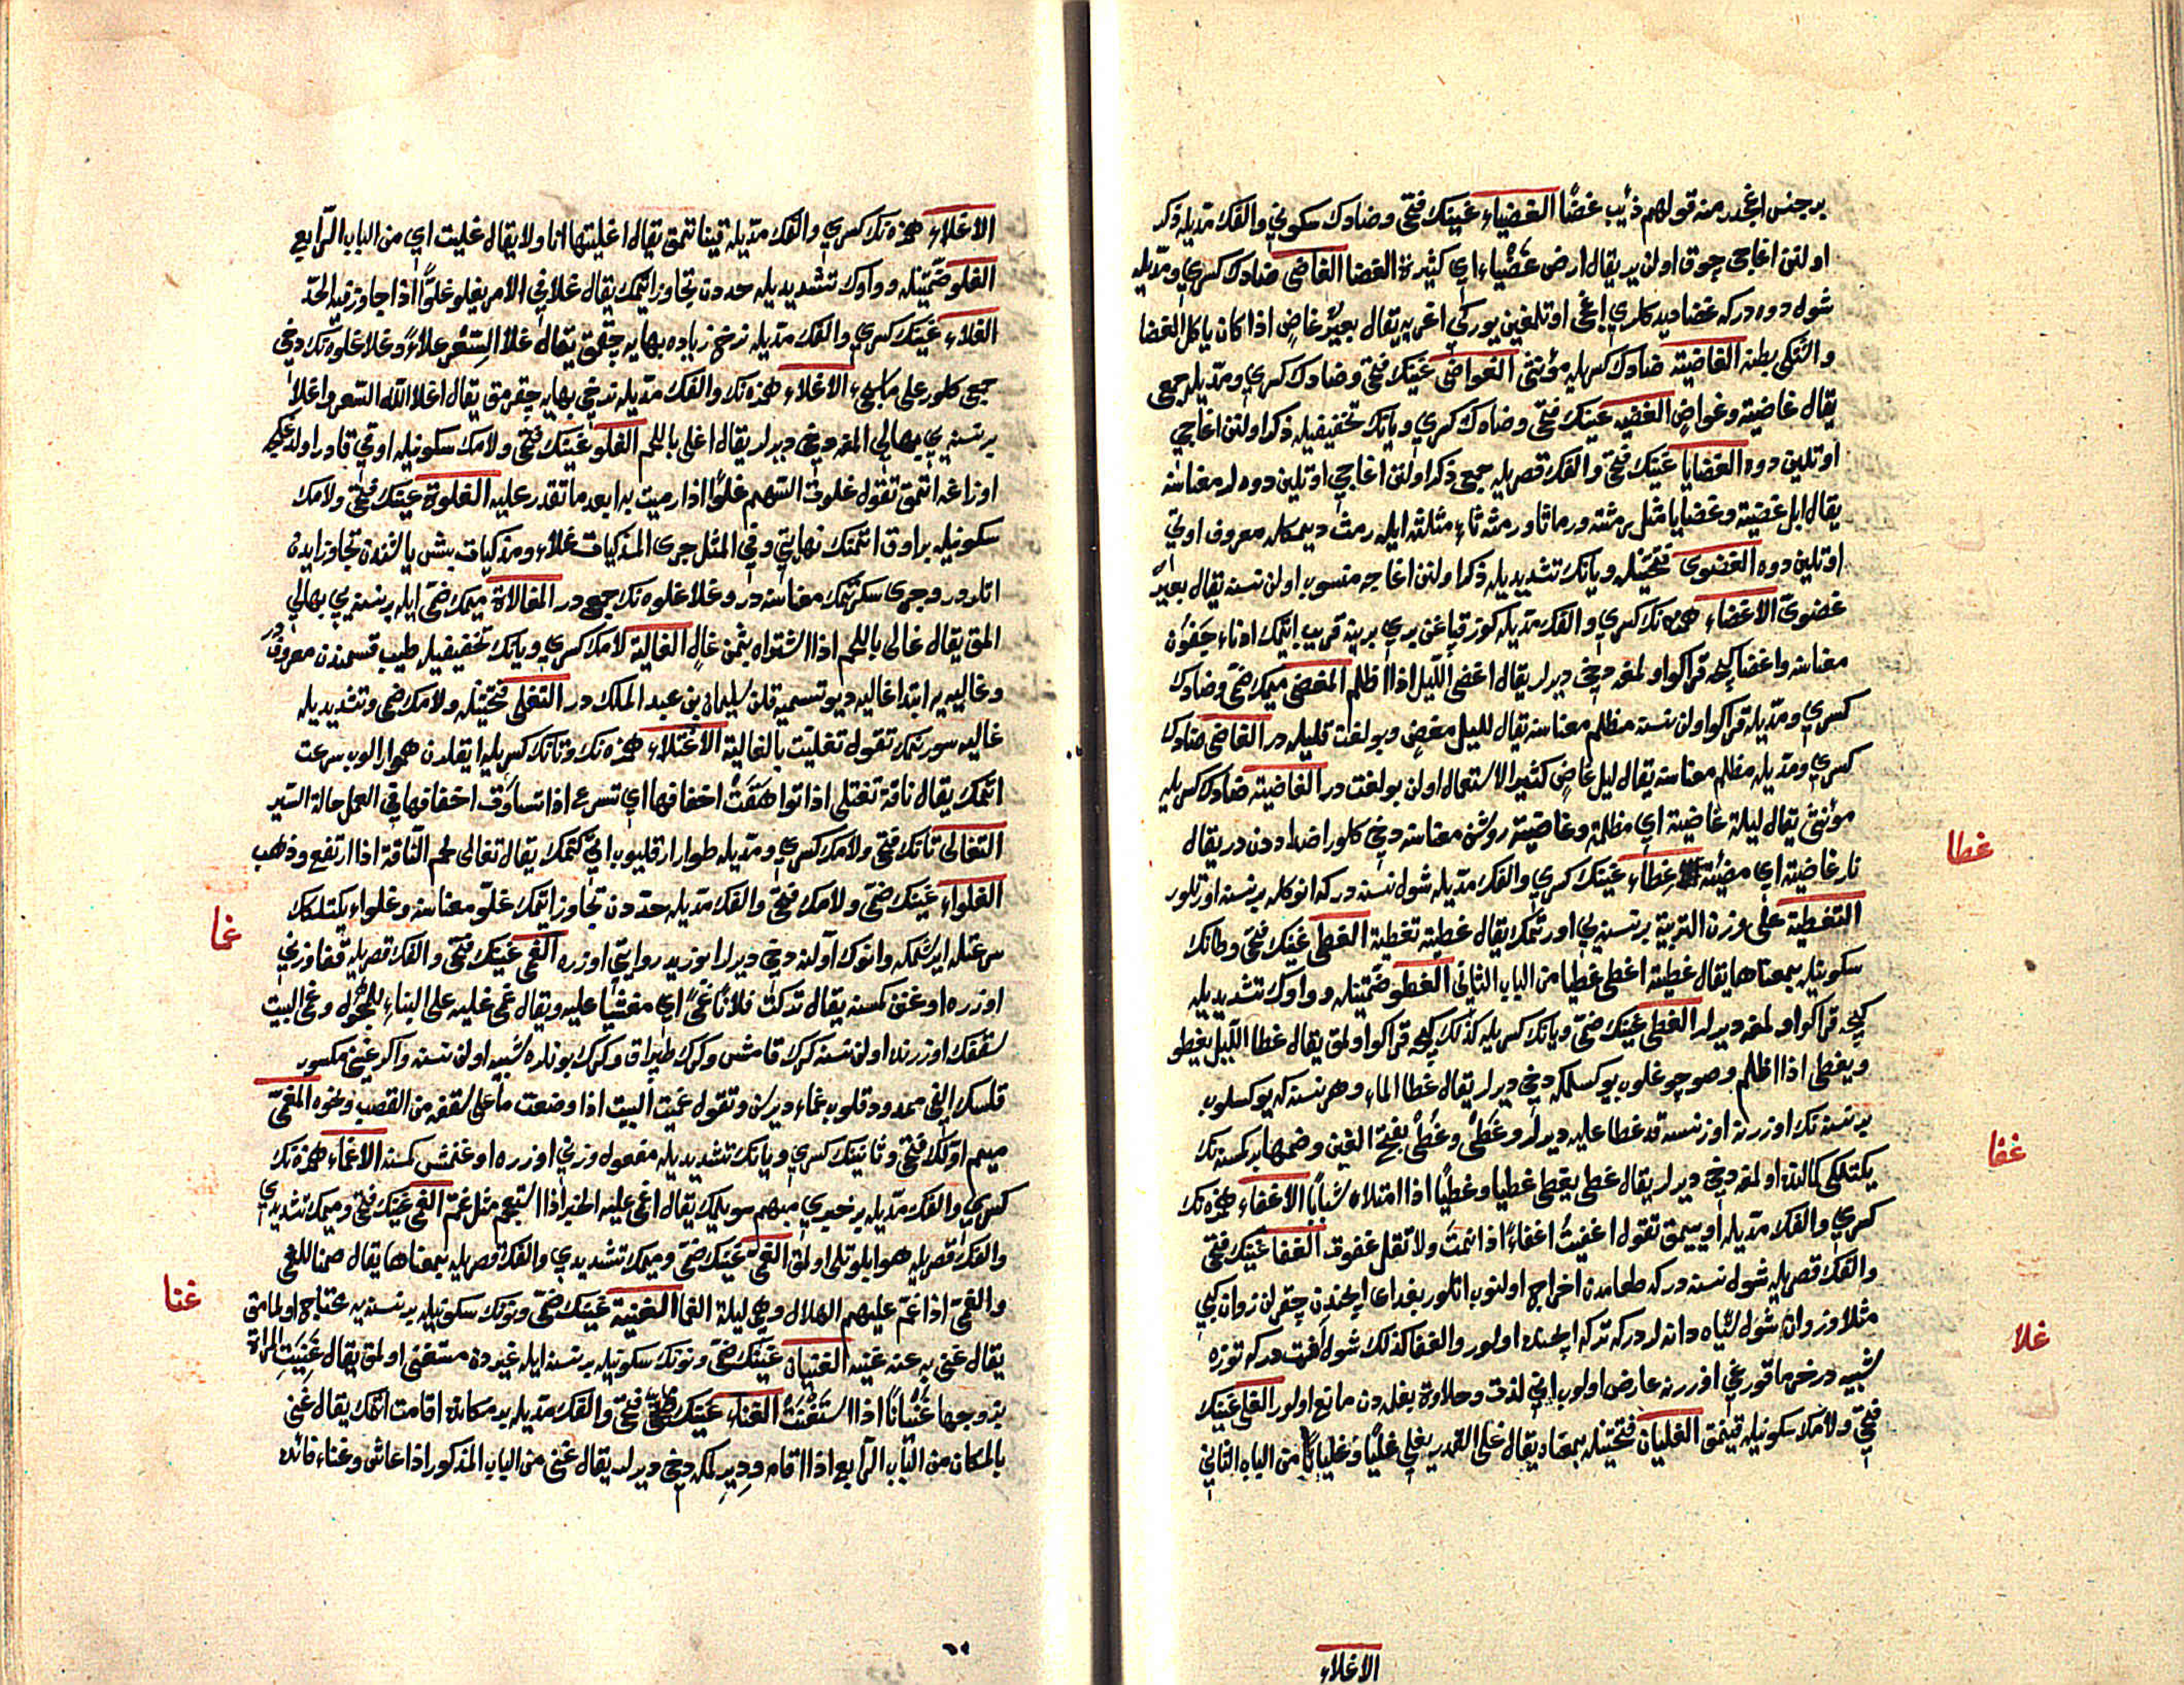 بر جنس اغجدر منه قولهم ذئب غضًا الغضياء غينك فتحى وضادك سكونى والفك مديله ذكر
اولنن اغاجى چوق اولن ير يقال ارض غضياء اي كثيرة الغضا الغاضى ضادك كسري ومديله
شول دوه دركه غضا ديدكلري اغجى اوتلمغين يوركى اغريه يقال بعير غاضٍ اذا كان ياكل الغضا
واشتكى بطنه الغاضية ضادك كسريله مؤنثى الغواضى غينك فتحى وضادك كسري ومديله جمع
يقال غاضية وغواضٍ الغضيه غينك فتحى وضادك كسري ويانك تخفيفيله ذكر اولنن اغاجى
اوتلين دوه الغضايا غينك فتحى والفك قصريله جمع ذكر اولنن اغاجى اوتلين دوه لر معناسنه
يقال ابل غضية وغضايا مثل رمثة ورماثا ورمثه ثاء مثلثه ايله رمث ديمكله معروف اوتى
اوتلين دوه الغضوى فتحتينله ويانك تشديديله ذكر اولنن اغاجه منسوب اولن نسنه يقال بعير
غضوىّ الاغضاء همزه نك كسري والفك مديله كوز قپاغن بري برينه قريب ايتمك ادناء جفون
معناسنه واغضا كيجه قراكو اولمغه دخى ديرلر يقال اغضى الليل اذا اظلم المغضى ميمك ضمى وضادك
كسري ومديله قراكو اولن نسنه مظلم معناسنه يقال لليل مغضٍ وبو لغت قليله در الغاضى ضادك
كسري ومديله مظلم معناسنه يقال ليل غاضٍ كثير الاستعمال اولن بو لغت در الغاضية ضادك كسريله
مؤنثى يقال ليلة غاضية اي مظلمة وغاضية روشن معناسنه دخى كلور اضداددن در يقال
نار غاضية اي مضيئة غطاء غينك كسري والفك مديله شول نسنه دركه انوكله بر نسنه اورتلور
التغطية على وزن التربية بر نسنه يي اورتمك يقال غطيته تغطية الغطى غينك فتحى وطانك
سكونيله بمعناها يقال غطيته اغطى غطيا من الباب الثانى الغطو ضمتينله وواوك تشديديله
كيجه قراكو اولمغه ديرلر الغطى غينك ضمى ويانك كسريله كذلك كيجه قراكو اولمق يقال غطا الليل يغطو
ويغطى اذا اظلم وصو چوغلوب يوكسلمكه دخى ديرلر يقال غطا الماء وهر نسنه كه يوكسلوب
بر نسنه نك اوزرنه اورنسه قد غطا عليه ديرلر وغَطْى وغُطْى بفتح الغين وضمها بر كمسنه نك
يكتلكى كمالنده اولمغه دخى ديرلر يقال غطى يغطى غطيا وغطيًا اذا امتلاء شبابًا الاغفاء همزه نك
كسري والفك مديله اويمق تقول اغفيت اغفاءً اذا نمت ولا تقل غفوت الغفا غينك فتحى
والفك قصريله شول نسنه دركه طعامدن اخراج اولنوب اتلور بغداى ايچندن چقرلن زوان كبى
مثلا وزوان شول سياه دانه لردركه تركه ايچنده اولور والغفا كذلك شول آفت دركه توزه
شبيه در خرما قوريغى اوزرنه عارض اولوب انى لذت وحلاوة بغلدن مانع اولور الغلى غينك
فتحى ولامك سكونيله قينمق الغليان فتحتينله بمعناه يقال غلى القدر يغلى غليًا وغليانًا من الباب الثانى
غطا
غفا
غلا
الاغلاء
الاغلاء همزه نك كسري والفك مديله قيناتمق يقال اغليتها انا ولا يقال غليت اي من الباب الرابع
الغلو ضمتينله وواوك تشديديله حددن تجاوز ايتمك يقال غلا فى الامر يغلو غلوًّا اذا جاوز فيه الحدّ
الغلاء غينك كسري والفك مديله نرخ زياده بهايه چقمق يقال غلا السعر غلاءً وغلا غلوه نك دخى
جمعى كلور على ما يجىء الاغلاء همزه نك والفك مديله نرخى بهايه چقرمق يقال اغلا الله السعر واغلا
بر نسنه يي بهالي المغه دخى ديرلر يقال اغلى باللحم الغلو غينك فتحى ولامك سكونيله اوقى قادر اولدغيچه
اوزاغه اتمق تقول غلوت السهم غلوًا اذا رميت به ابعد ما تقدر عليه الغلوة غينك فتحى ولامك
سكونيله بر اوق اتمنك نهايتى وفى المثل جرى المذكيات غلاء ومذكيات بش ياشندن تجاوز ايدن
اتلردر وجرى سكرتمك معناسنه در وغلا غلوه نك جمعيدر المغالاة ميمك ضمى ايله بر نسنه يي بهالي
المق يقال غالى باللحم اذا اشتراه بثمن غالٍ الغالية لامك كسري ويانك تخفيفيله طيب قسمندن معروفدر
وغاليه يه ابتدا غاليه ديو تسميه قلن سليمان بن عبد الملك در التغلى فتحتينله ولامك ضمى وتشديديله
غاليه سورنمك تقول تغليت بالغالية الاغتلاء همزه نك وتانك كسريله ايقلدن هموار الوب سرعت
ايتمك يقال ناقة تغتلى اذا تواهقت اخفافها اي تسرع اذا تساوت اخفافها فى العمل حالة السير
التغالى تانك فتحى ولامك كسري ومديله طوارارقليوب اتى كتمك يقال تغالى لحم الناقة اذا ارتفع وذهب
الغلواء غينك ضمى ولامك فتحى والفك مديله حددن تجاوز ايتمك غلو معناسنه وغلواء يكتلكك
سرعتله ايرشمكه وانوك اولنه دخى ديرلر ابو زيد روايتى اوزره الغمى غينك فتحى والفك قصريله قفا وزنى
اوزره اوغنن كمسنه يقال تركت فلانًا غمًى اي مغشيا عليه ويقال غمى عليه على البناء للمجهول وغمى البيت
سقفك اوزرنده اولن نسنه كرك قامش وكرك طپراق وكرك بونلره شبيه اولن نسنه واكر غينى مكسور
قلسك الفى ممدود قلوب غماء ديرسن وتقول غميت البيت اذا وضعت ما على سقفه من القصب ونحوه المغمىّ
ميم اولك فتحى وثانينك كسري ويانك تشديديله مفعول وزنى اوزره اوغنمش كمسنه الاغماء همزه نك
كسري والفك مديله بر خبري مبهم سويلمك يقال اغمى عليه الخبر اذا استعجم مثل غمّ الغمى غينك فتحى وميمك تشديدي
والفك قصريله هوا بلوتلى اولمق الغمى غينك ضمى وميمك تشديدي والفك قصريله بمعناها يقال صمنا للغمى
والغمى اذا غمّ عليهم الهلال وهى ليلة الغما الغنية غينك ضمى ونونك سكونيله بر نسنه يه محتاج اولمامق
يقال غنى به عنه غنيه الغنيان غينك ضمى ونونك سكونيله بر نسنه ايله غيردن مستغنى اولمق يقال غنيت المراة
بزوجها غنيانًا اذا استغنت الغناء غينك فتحى والفك مديله بر مكانده اقامت ايتمك يقال غنى
بالمكان من الباب الرابع اذا اقام وديرلمكه دخى ديرلر يقال غنى من الباب المذكور اذا عاش وغناء فائده
غما
غنا